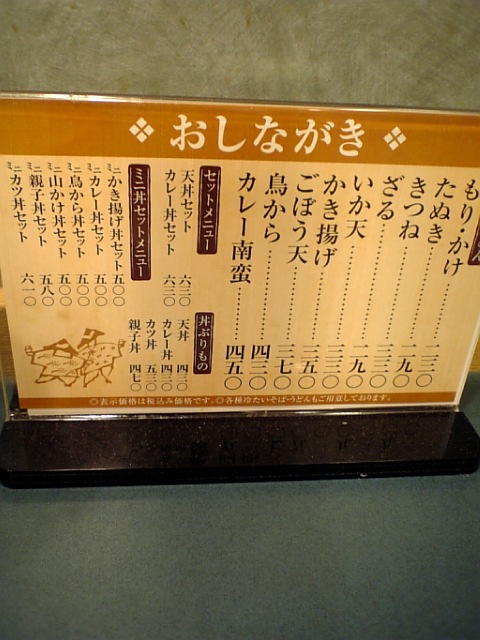 おしながき
ん
もり・かけ……二三〇
たぬき……二九〇
きつね……三三〇
ざる……二九〇
いか天……三三〇
かき揚げ……三五〇
ごぼう天……三七〇
鳥から……四三〇
カレー南蛮……四五〇
セットメニュー
天丼セット 六三〇
カレー丼セット 六三〇
丼ぶりもの
天丼 四三〇
カレー丼 四三〇
カツ丼 五二〇
親子丼 四七〇
ミニ丼セットメニュー
ミニかき揚げ丼セット 五〇〇
ミニカレー丼セット 五〇〇
ミニ鳥から丼セット 五〇〇
ミニ山かけ丼セット 五〇〇
ミニ親子丼セット 五八〇
ミニカツ丼セット 六一〇
◎表示価格は税込み価格です。◎各種冷たいそば・うどんもご用意しております。